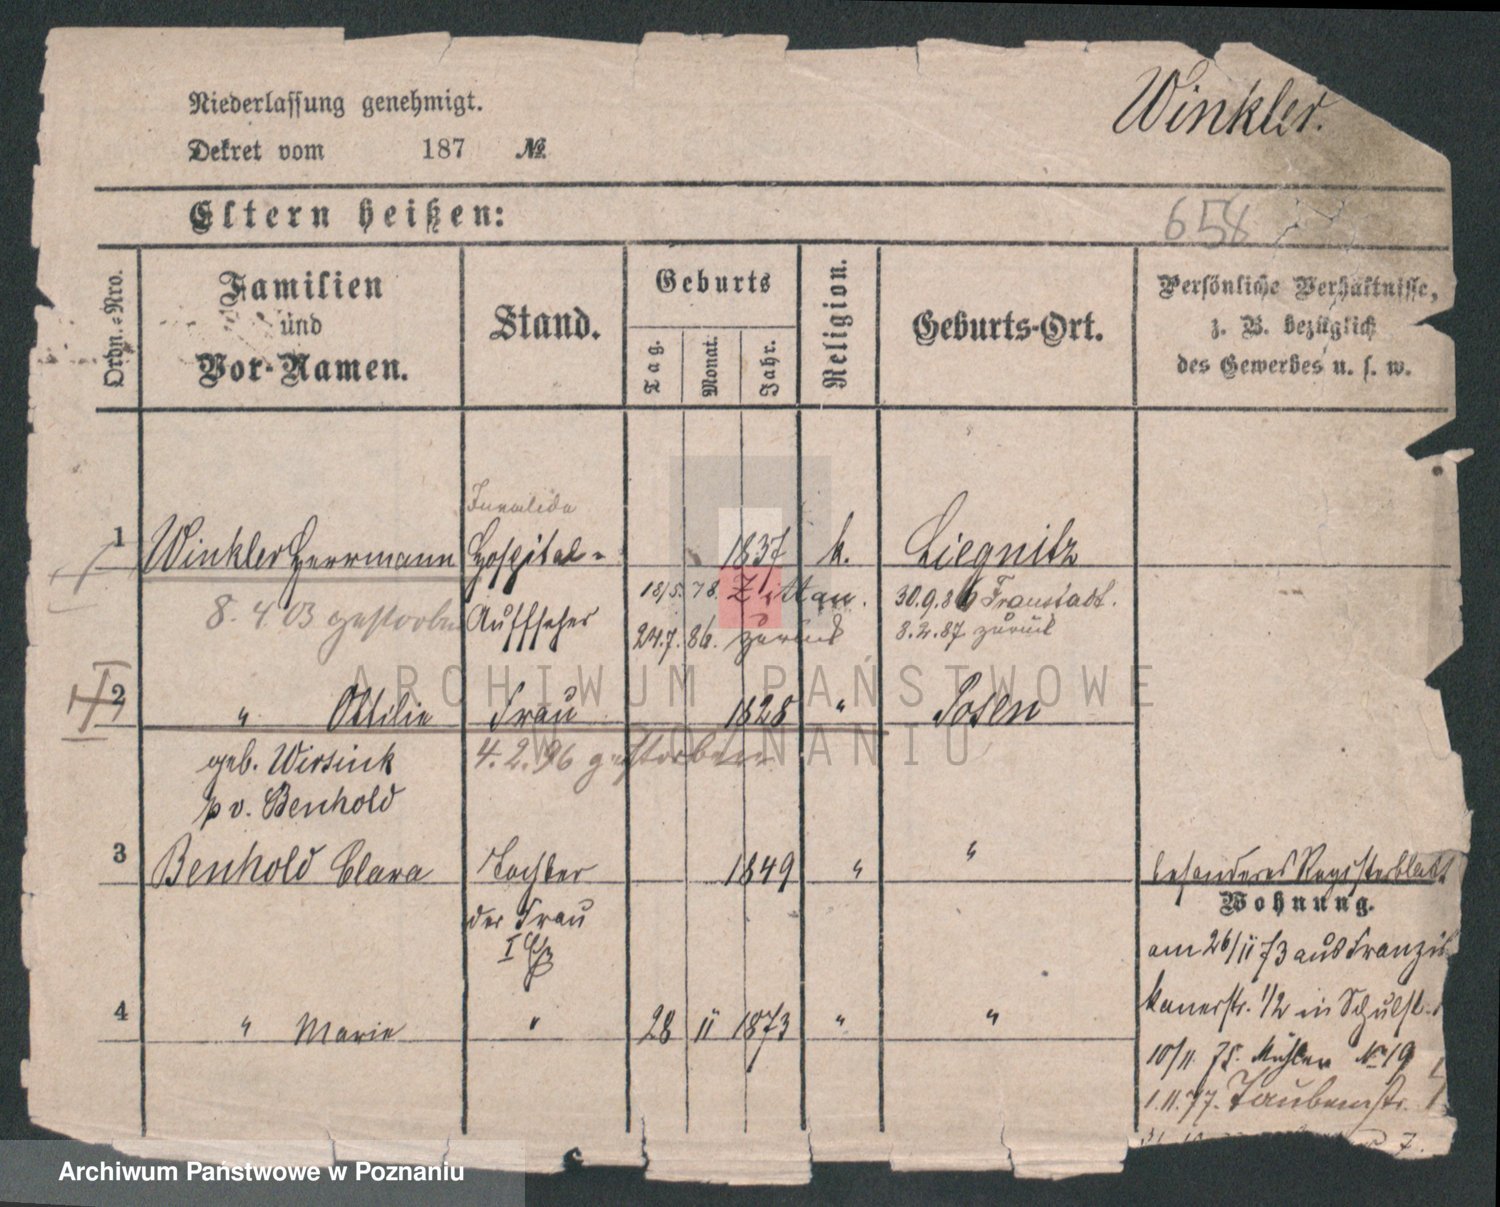 Winkler.
Niederlassung genehmigt.
Dekret vom 187 №
658
Eltern heißen:
Ordn.-Nro.
Familien
und
Vor-Namen.
Stand.
Geburts
Tag.
Monat.
Jahr.
Religion.
Geburts-Ort.
Persönliche Verhältnisse,
z. B. bezüglich
des Gewerbes u. s. w.
Invalide
1 Winkler Herrmann Hospital- 1837 k. Liegnitz
8.4.03 gestorben Aufseher
18/5.78. Zittau. 30.9.86 Fraustadt.
24.7.86. zurück 8.2.87 zurück
2 " Ottilie Frau 1828 " Posen
geb. Wirsink 4.2.96 gestorben
p v. Benhold
3 Benhold Clara Tochter 1849 " " besonderes Registerblatt
der Frau
I
4 " Marie " 28 11 1873 " "
Wohnung.
am 26/11 73 aus Franzis
kanerstr. 1/2 in Schulst.
10/11. 75. Mühlen № 19
1.11.77. Taubenstr.
ARCHIWUM PAŃSTWOWE
W POZNANIU
Archiwum Państwowe w Poznaniu